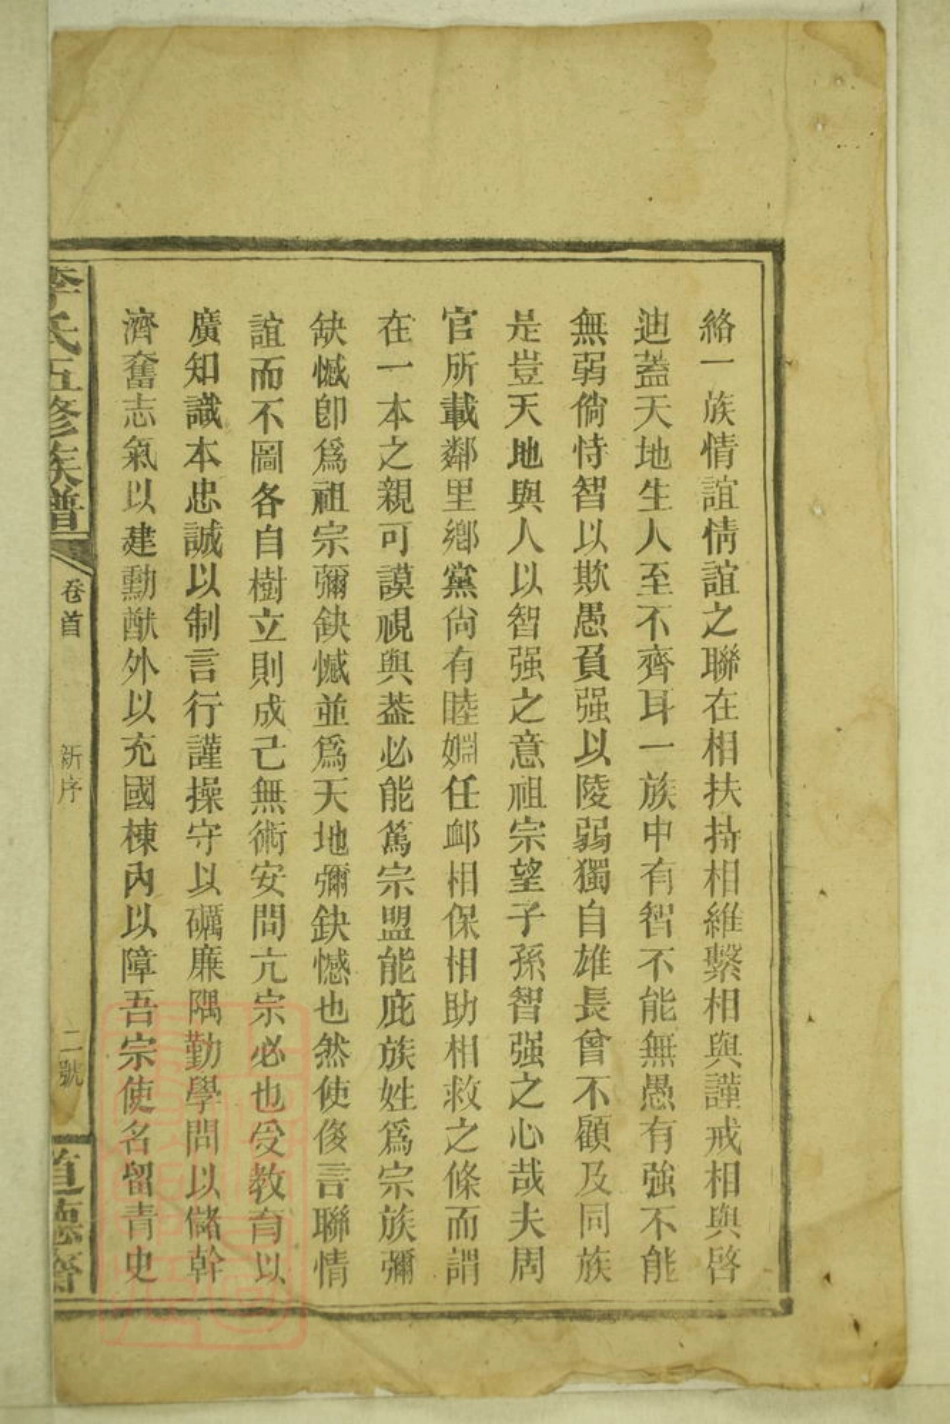 絡一族情誼情誼之聯在相扶持相維繫相與謹戒相與啓
迪蓋天地生人至不齊耳一族中有智不能無愚有強不能
無弱倘恃智以欺愚負强以陵弱獨自雄長曾不顧及同族
是豈天地與人以智强之意祖宗望子孫智强之心哉夫周
官所載鄰里鄉黨尙有睦婣任卹相保相助相救之條而謂
在一本之親可謨視與葢必能篤宗盟能庇族姓爲宗族彌
缺憾卽爲祖宗彌缺憾並爲天地彌缺憾也然使俊言聯情
誼而不圖各自樹立則成己無術安問亢宗必也受教育以
廣知識本忠誠以制言行謹操守以礪廉隅勤學問以儲幹
濟奮志氣以建勳猷外以充國棟內以障吾宗使名留青史
李氏五修族譜
卷首
新序
二號
道德齋